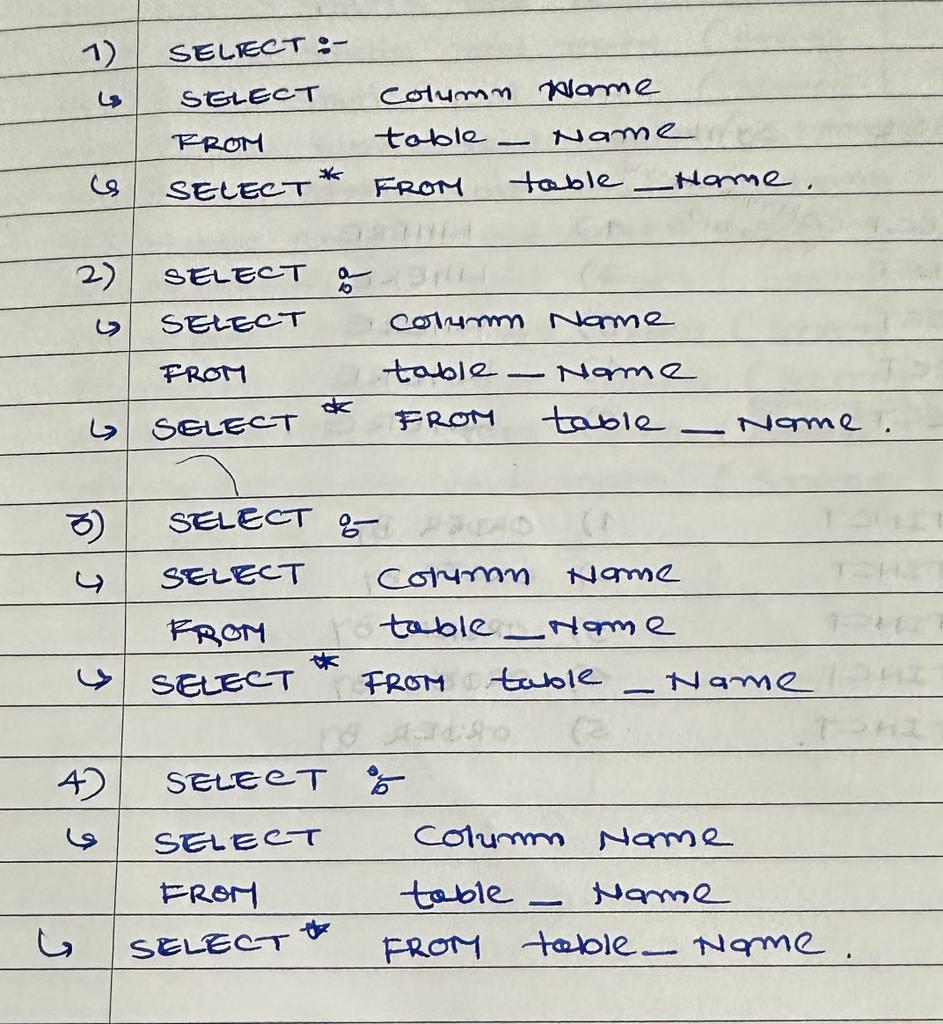 1) SELECT :-
↳ SELECT Column Name
FROM table _ Name
↳ SELECT * FROM table _ Name .
2) SELECT :-
↳ SELECT Column Name
FROM table _ Name
↳ SELECT * FROM table _ Name .
3) SELECT :-
↳ SELECT Column Name
FROM table _ Name
↳ SELECT * FROM table _ Name
4) SELECT :-
↳ SELECT Column Name
FROM table _ Name
↳ SELECT * FROM table _ Name .